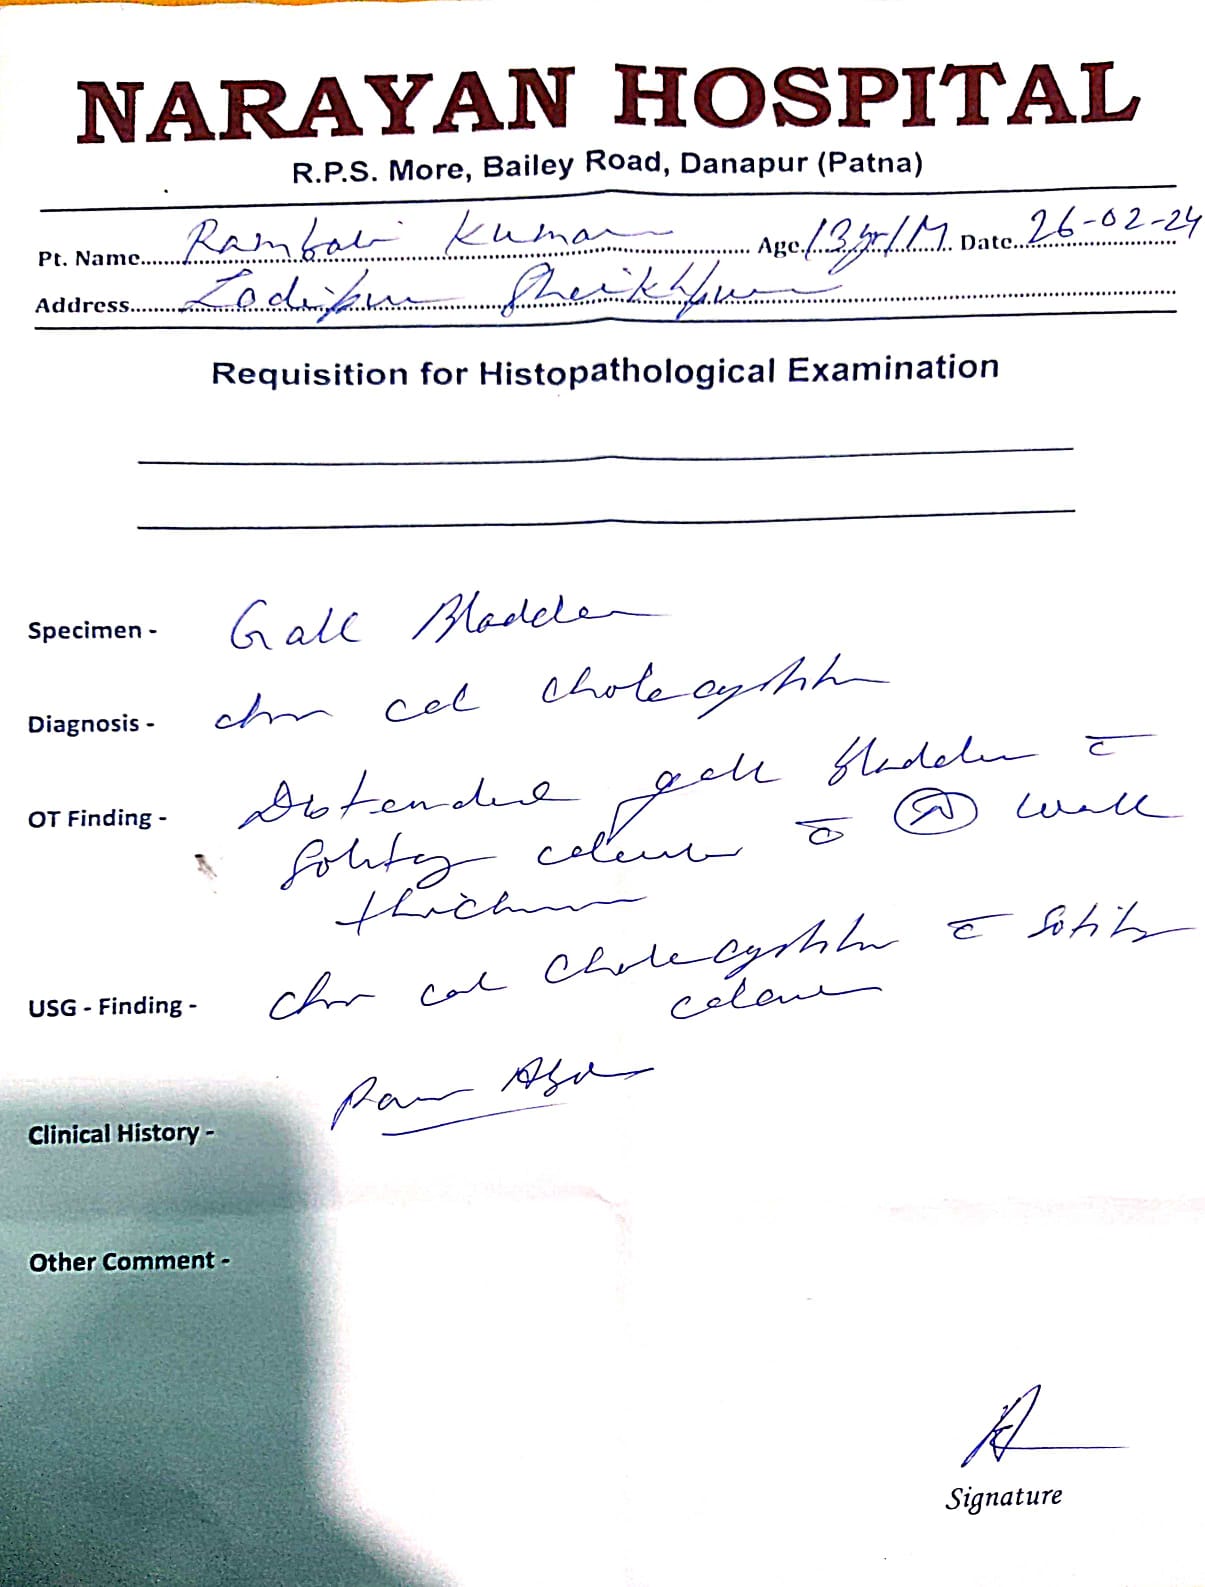 NARAYAN HOSPITAL
R.P.S. More, Bailey Road, Danapur (Patna)
Pt. Name...... Rambali Kumar ...... Age. 13 yr/M Date.. 26-02-24
Address...... Sheikhpura
Requisition for Histopathological Examination
Specimen - Gall Bladder
Diagnosis - chr cal cholecystitis
OT Finding - Distended gall bladder c̄
Solitary calculus c̄ (N) wall
thickness
USG - Finding - Chr cal Cholecystitis c̄ Solitary
calculus
Clinical History - Pain Abd
Other Comment -
Signature